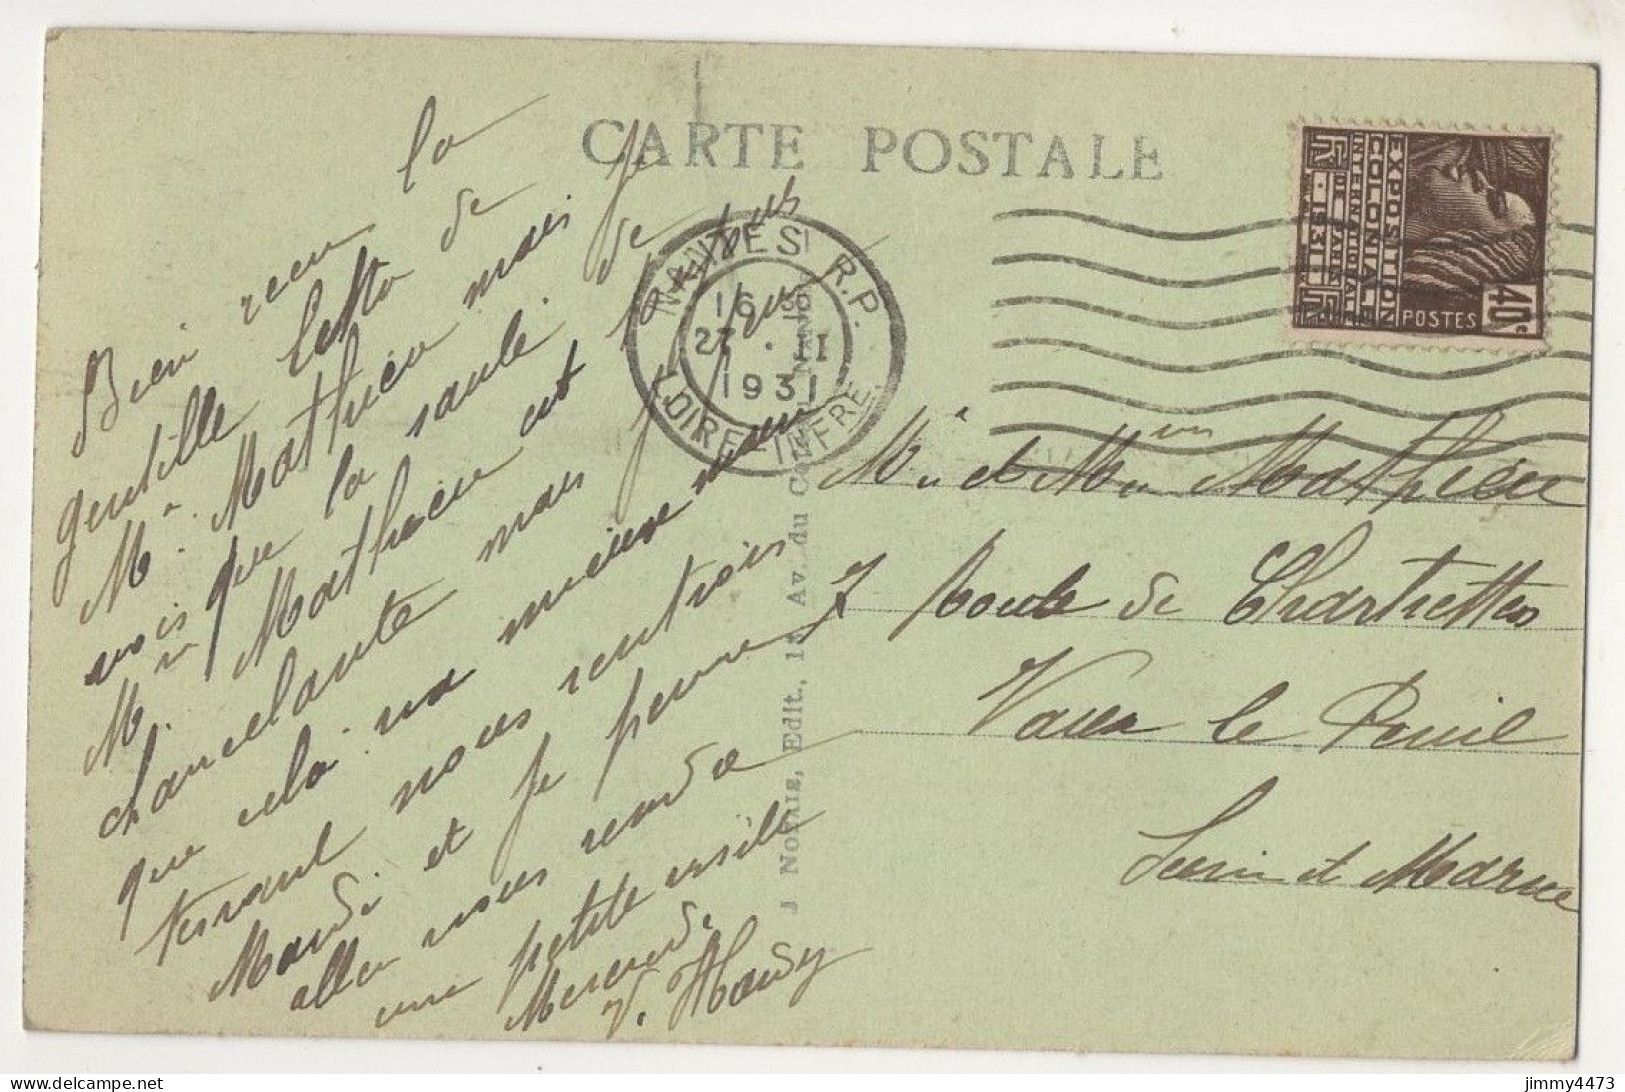 CARTE POSTALE
Bien recu la
gentille lettre de
Mr. Mathieu mais je
vois que la santé de
M. Mathieu est
chancelante mais je
que cela va mieux
nous rentrons
Mardi et je pense
aller vous rendre
une petite visite
Mercredi
V. Hardy
NANTES R.P.
16 30
27 · II
1931
LOIRE-INFRE.
J Nozais, Edit., 15 Av. du
EXPOSITION
COLONIALE
INTERNATIONALE
DE PARIS
·1931·
POSTES
40c
Mr et Mme Mathieu
7 Route de Chartrettes
Vaux le Penil
Seine et Marne
jimmy4473